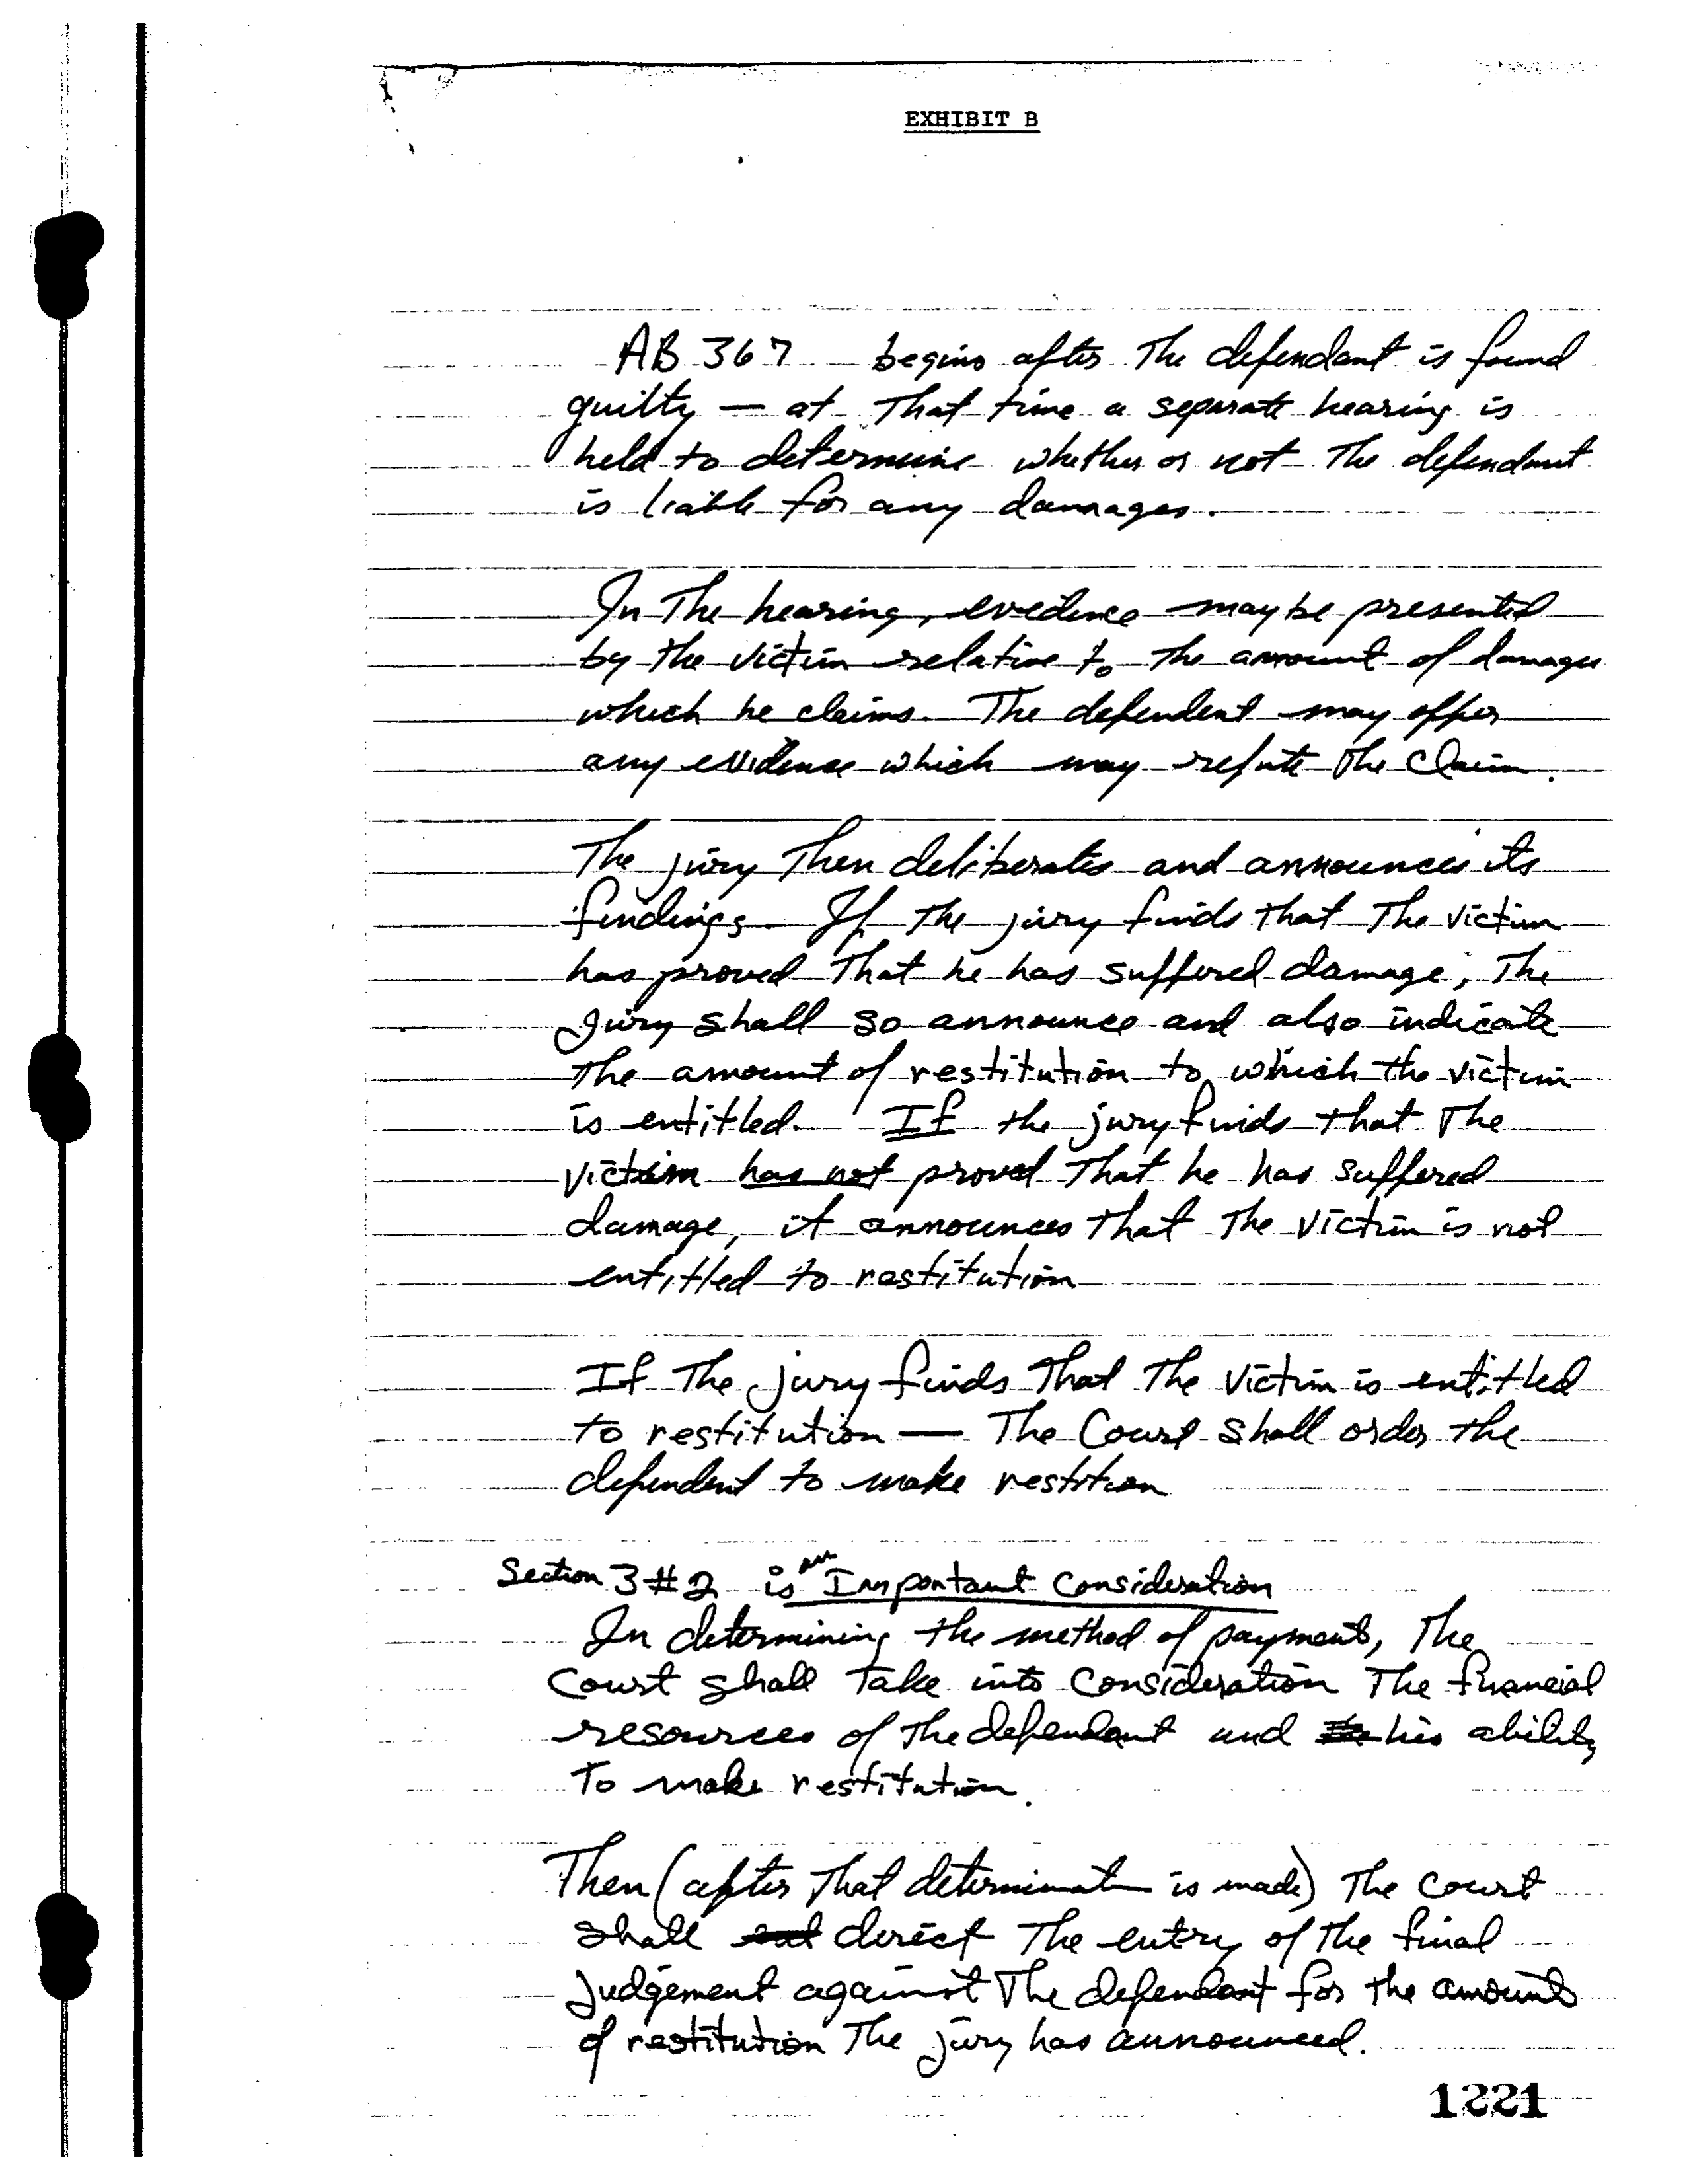 EXHIBIT B
AB 367 begins after The defendant is found
guilty — at That time a separate hearing is
held to determine whether or not The defendant
is liable for any damages.
In The hearing, evidence may be presented
by the victim relative to the amount of damages
which he claims. The defendent may offer
any evidence which may refute The Claim.
The jury Then deliberates and announces its
findings. If the jury finds that The victim
has proved That he has suffered damage, The
jury shall so announce and also indicate
The amount of restitution to which the victim
is entitled. If the jury finds that The
victim has not proved That he has suffered
damage, it announces that The victim is not
entitled to restitution
If The jury finds That The Victim is entitled
to restitution — The Court shall order the
defendent to make restition
Section 3 #2 is an Important Consideration
In determining the method of payments, The
Court shall Take into Consideration The financial
resources of The defendant and his ability
To make restitution.
Then (after That determinat is made) The Court
shall direct The entry of The final
Judgement against The defendant for the amounts
of restitution The jury has announced.
1221